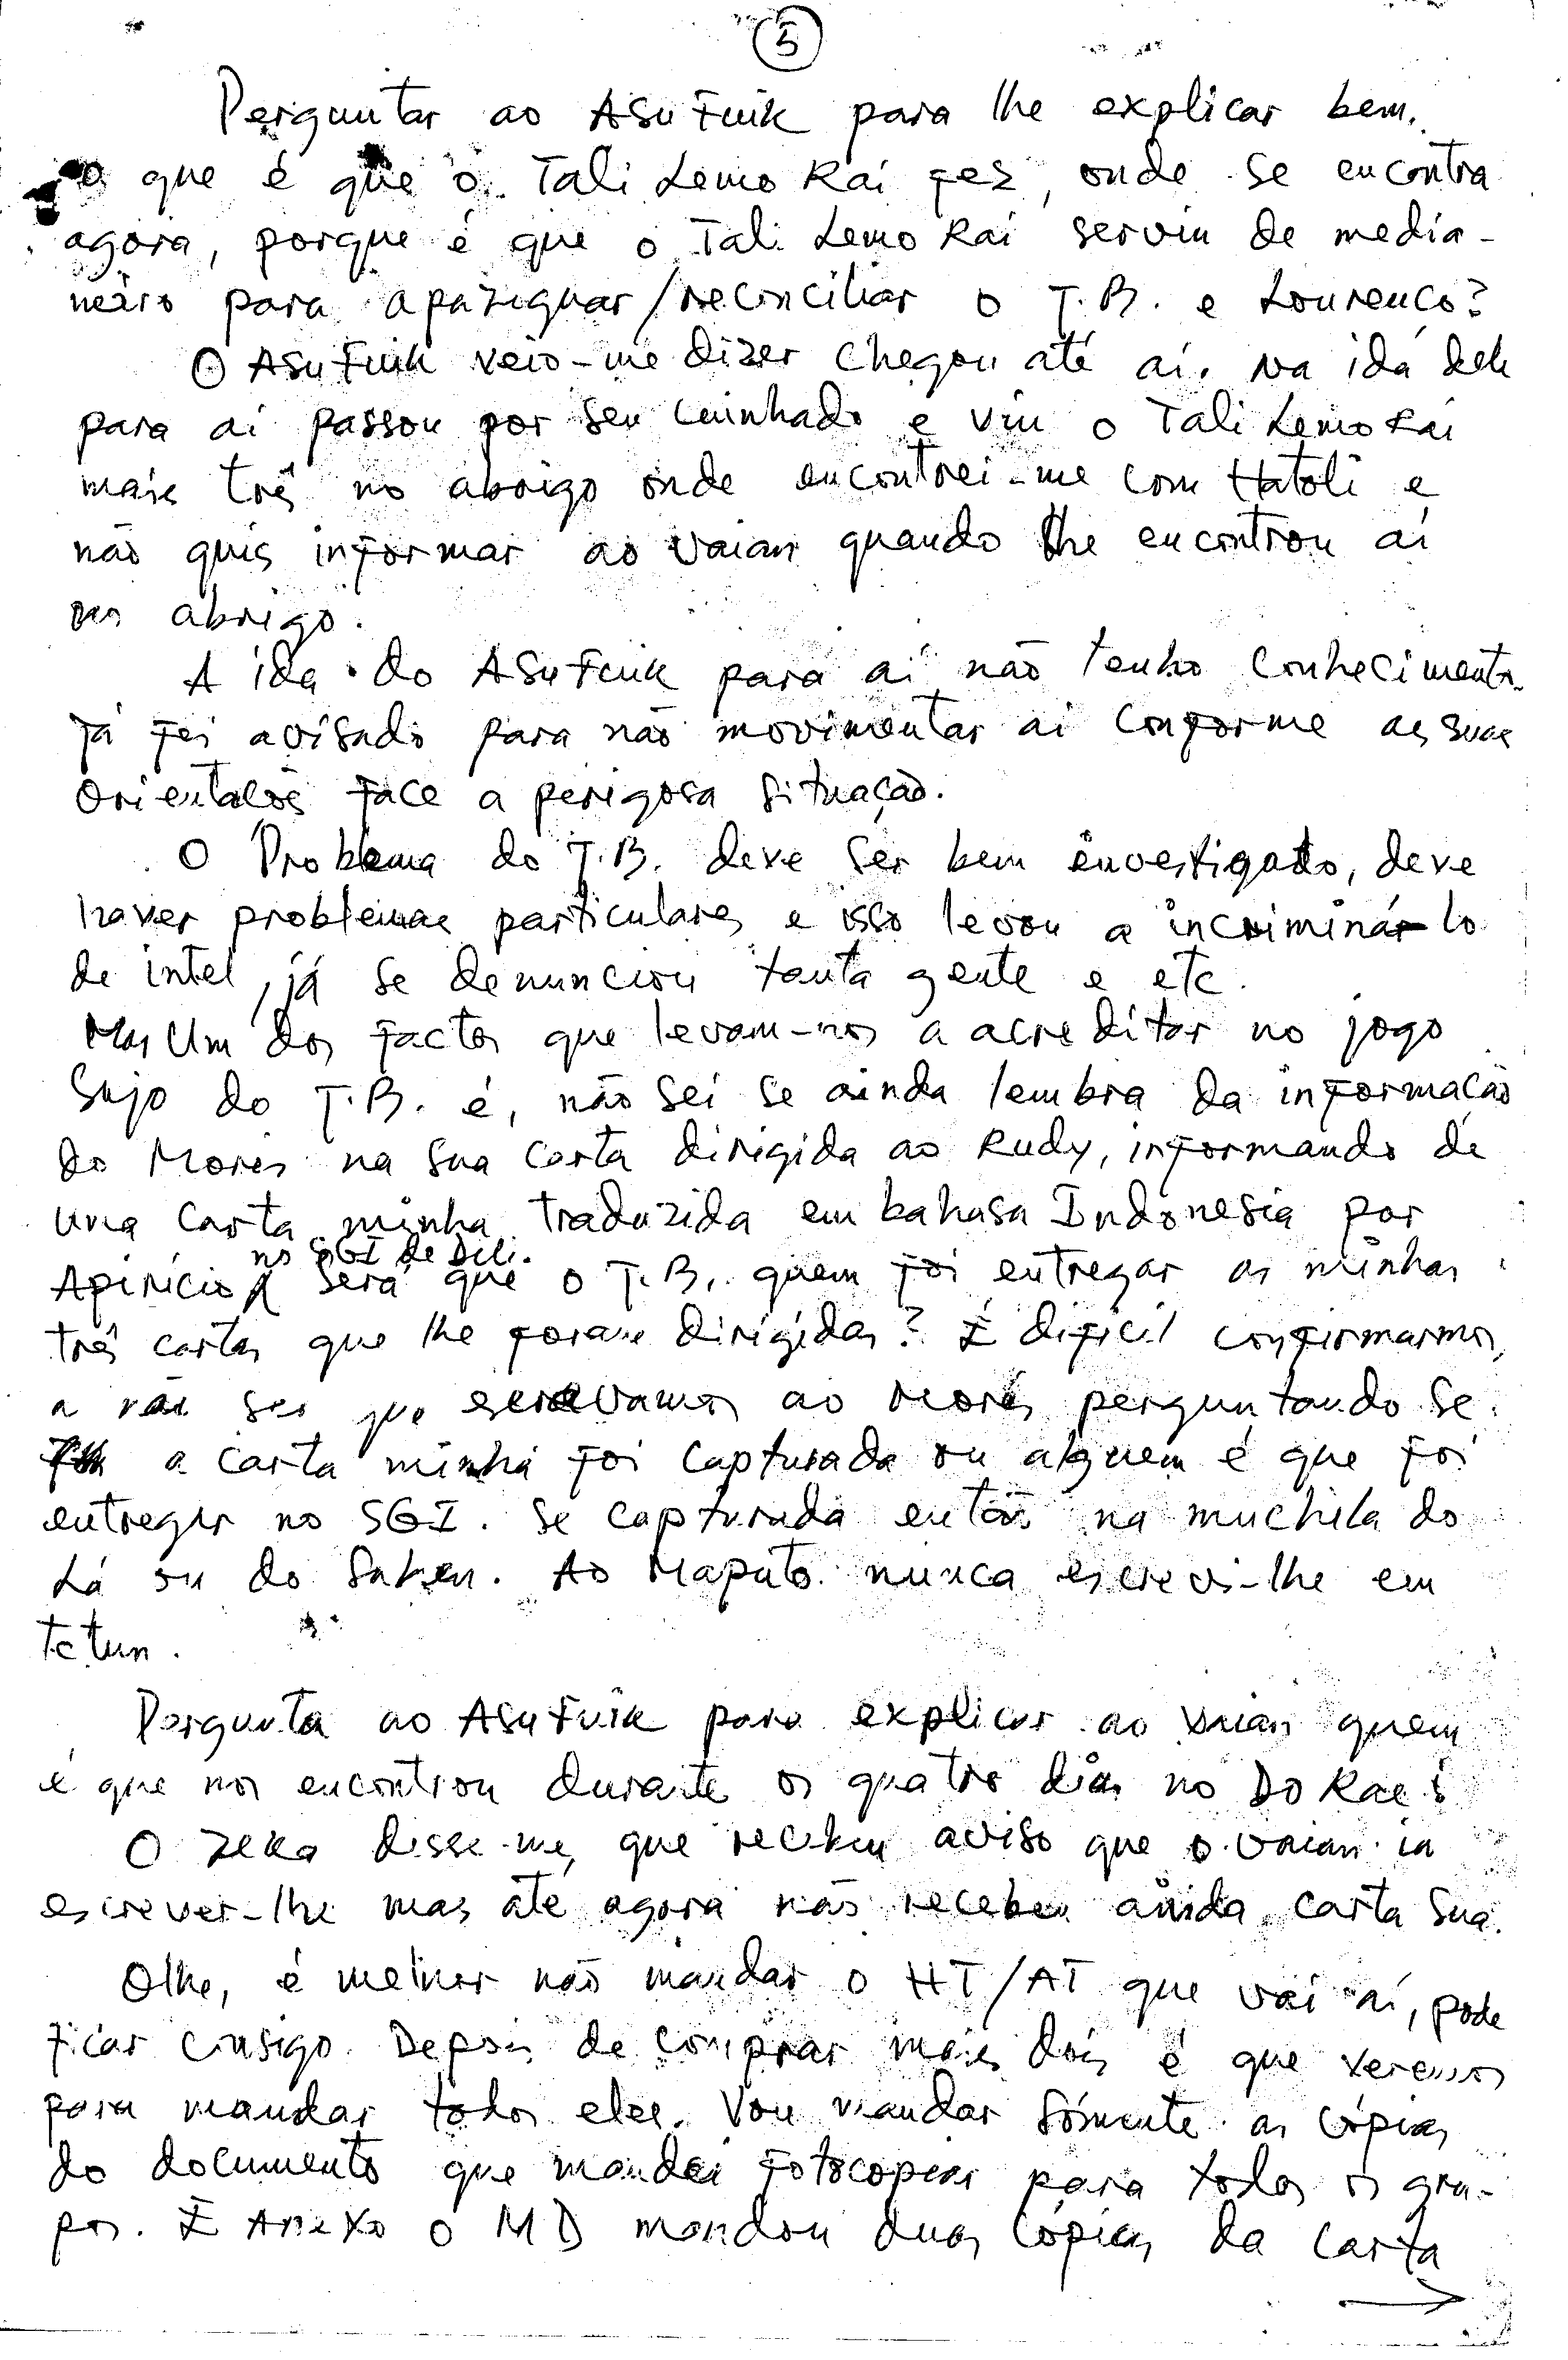 5
Perguntar ao Asu Fuik para lhe explicar bem.
o que é que o Tali Lemo Rai fez, onde se encontra
agora, porque é que o Tali Lemo Rai serviu de media-
neiro para apaziguar/reconciliar o T.B. e Lourenco?
O Asu Fuik veio-me dizer chegou até aí. Na ida dele
para aí passou por seu cuinhado e viu o Tali Lemo Rai
mais três no abrigo onde encontrei-me com Hatoli e
não quis informar ao Vaian quando lhe encontrou aí
no abrigo.
A ida do Asu Fuik para aí não tenho conhecimento.
Já foi avisado para não movimentar aí conforme as suas
orientacões face a perigosa situação.
O Problema do T.B. deve ser bem envestigado, deve
haver problemas particulares e isso levou a incriminár-lo
de intel, já se denunciou tanta gente e etc.
Mas Um dos factos que levam-nos a acreditar no jogo
Sujo do T.B. é, não sei se ainda lembra da informacão
do Mores na sua carta dirigida ao Rudy, informando de
uma carta minha traduzida em bahasa Indonesia por
no SGI de Dili.
Apirício será que o T.B., quem foi entregar as minhas
três cartas que lhe foram dirigidas? É difícil confirmarmos,
a não ser que escrevamos ao Mores perguntando se
a carta minha foi capturada ou alguem é que foi
entregar no SGI. Se capturada então na muchila do
Lá ou do Saken. Ao Maputo nunca escrevi-lhe em
tetun.
Pergunta ao Asu Fuik para explicar ao Vaian quem
é que nos encontrou durante os quatro dias no Do Rae?
O Zeka disse-me, que recebeu aviso que o Vaian ia
escrever-lhe mas até agora não recebeu ainda carta sua.
Olhe, é melhor não mandar o HT/AT que vai aí, pode
ficar consigo. Depois de comprar mais dois é que veremos
para mandar todos eles. Vou mandar sómente as cópias
do documento que mandei fotocopiar para todos os gru-
pos. É Anexo o MD mandou duas cópias da carta
→